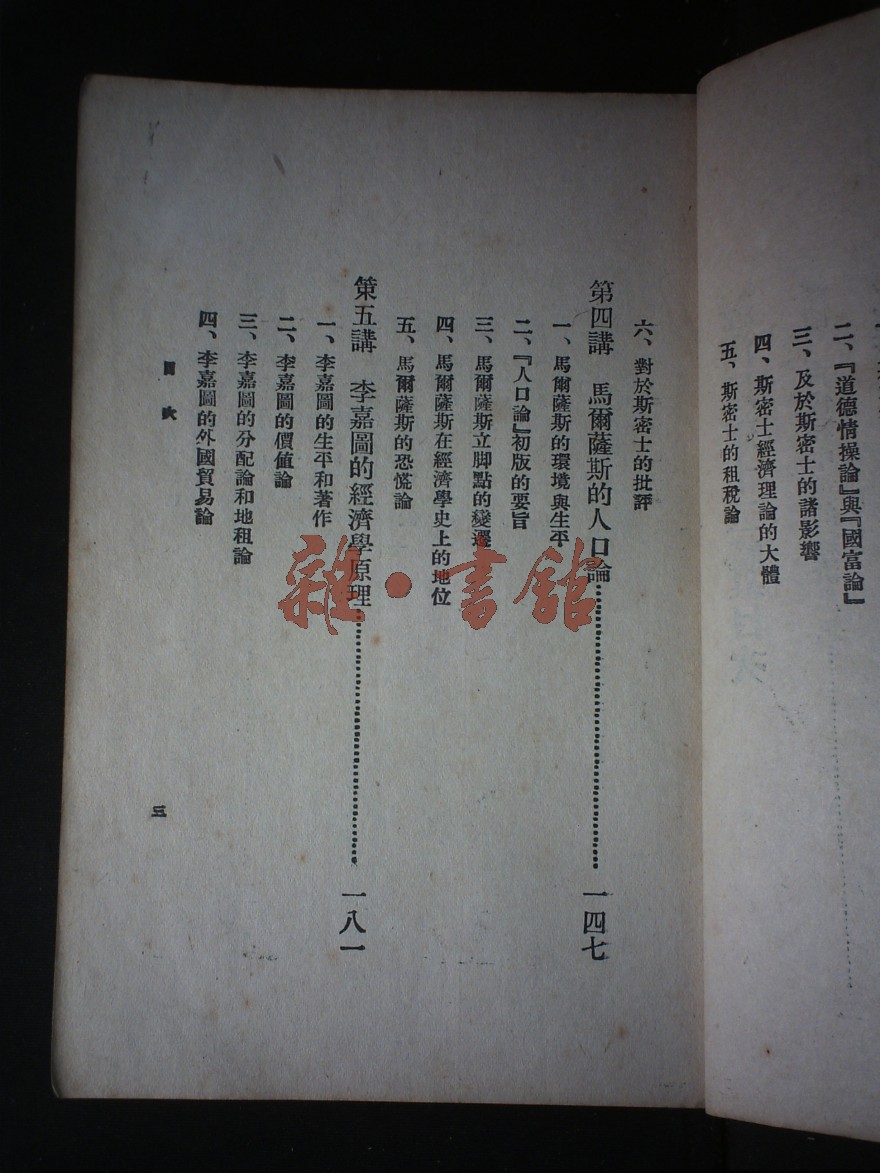 二、『道德情操論』與『國富論』
三、及於斯密士的諸影響
四、斯密士經濟理論的大體
五、斯密士的租稅論
六、對於斯密士的批評
第四講 馬爾薩斯的人口論…………一四七
一、馬爾薩斯的環境與生平
二、『人口論』初版的要旨
三、馬爾薩斯立脚點的變遷
四、馬爾薩斯在經濟學史上的地位
五、馬爾薩斯的恐慌論
第五講 李嘉圖的經濟學原理…………一八一
一、李嘉圖的生平和著作
二、李嘉圖的價值論
三、李嘉圖的分配論和地租論
四、李嘉圖的外國貿易論
目次
三
雜·書館